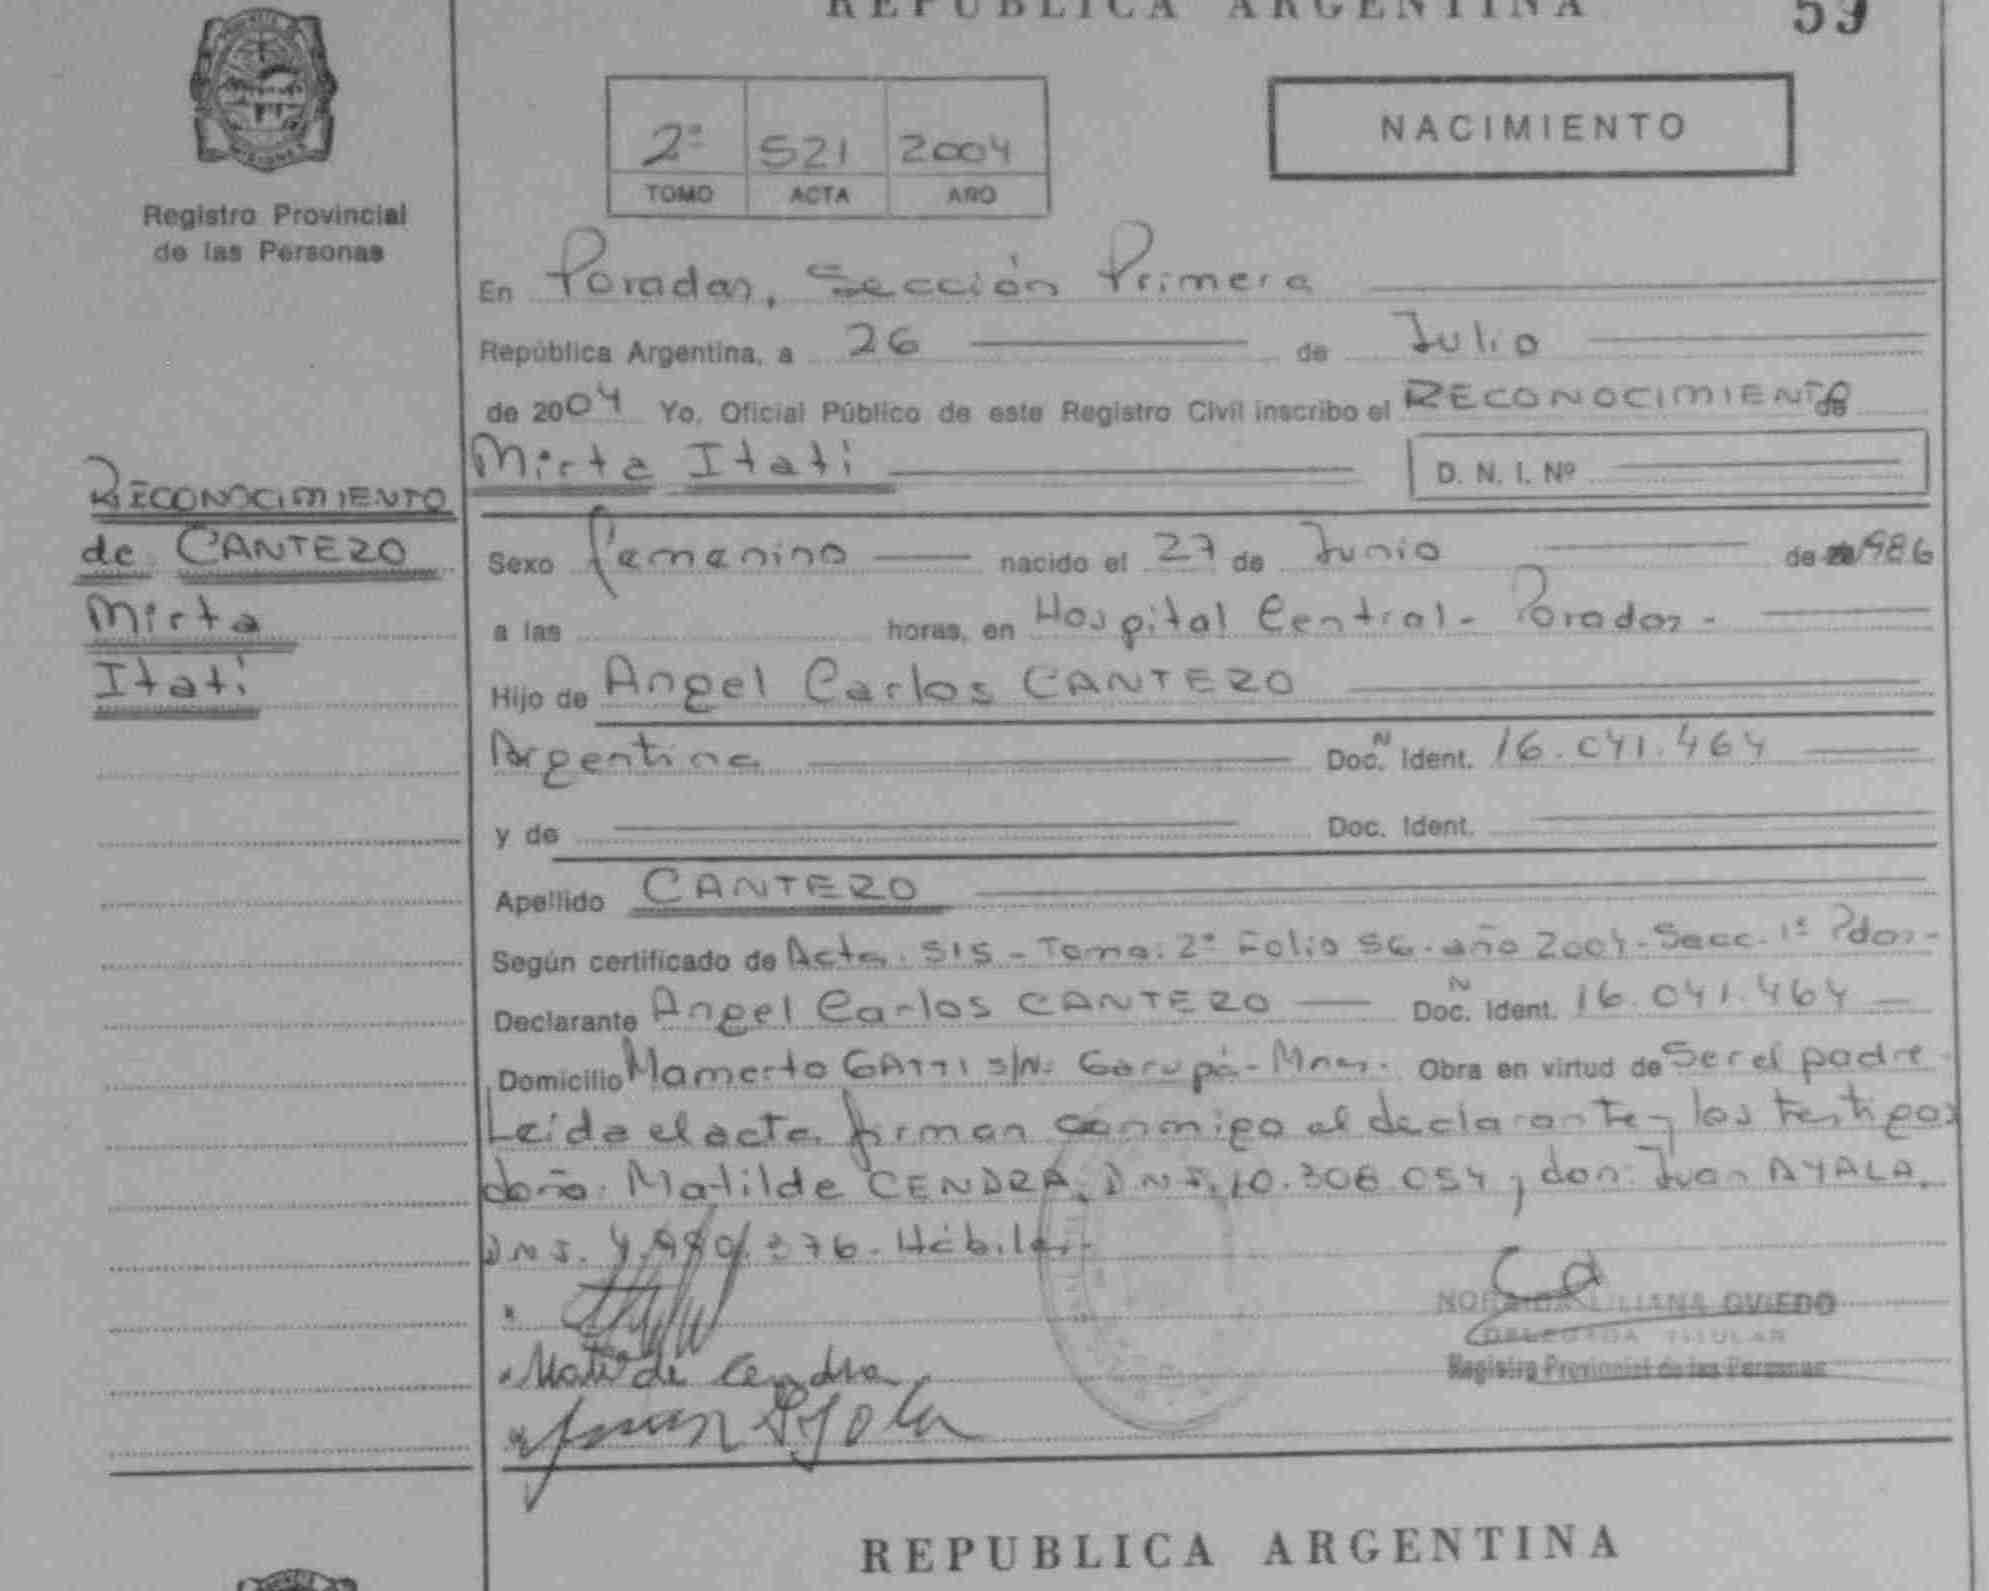 REPUBLICA ARGENTINA
59
Registro Provincial
de las Personas
2ª 521 2004
TOMO ACTA AÑO
NACIMIENTO
En Posadas, Sección Primera
República Argentina, a 26 de Julio
de 2004 Yo, Oficial Público de este Registro Civil inscribo el RECONOCIMIENTO de
Mirta Itatí D. N. I. Nº
RECONOCIMIENTO
de CANTERO
Mirta
Itatí
Sexo femenino nacido el 27 de Junio de 1986
a las horas, en Hospital Central - Posadas -
Hijo de Angel Carlos CANTERO
Argentina Doc. N Ident. 16.041.464
y de Doc. Ident.
Apellido CANTERO
Según certificado de Acta: 515 - Tomo: 2º Folio 56 - año 2004 - Secc. 1ª Pdas -
Declarante Angel Carlos CANTERO Doc. N Ident. 16.041.464
Domicilio Mamerto GATTI s/N: Garupá - Mnes. Obra en virtud de Ser el padre -
Leída el acta firman conmigo el declarante y los testigos
doña: Matilde CENDRA, D.N.I. 10.308.054 y don: Juan AYALA,
D.N.I. 376 - Hábiles -
Matilde Cendra
Juan Ayala
LILIANA OVIEDO
DELEGADA TITULAR
Registro Provincial de las Personas
REPUBLICA ARGENTINA